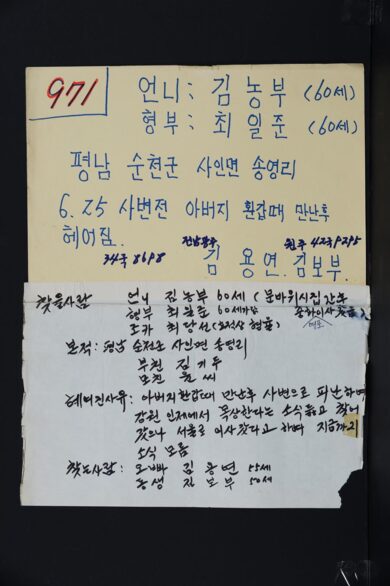 971
언니: 김농부 (60세)
형부: 최일준 (60세)
평남 순천군 사인면 송영리
6.25 사변전 아버지 환갑때 만난후
헤어짐.
전남광주
원주 42국9295
34국 8698
김용연. 김보부.
찾을사람 언니 김농부 60세 (문바위시집간후
형부 최일준 60세가량
조카 최당선
본적: 평남 순천군 사인면 송영리
부친 김기두
모친 윤씨
헤어진사유: 아버지환갑때 만난후 사변으로 피난하여
강원 인제에서 목상한다는 소식듣고 찾어
갔으나 서울로 이사갔다고 하며 지금까지
소식 모름
찾는사람: 오빠 김용연 55세
동생 김보부 50세